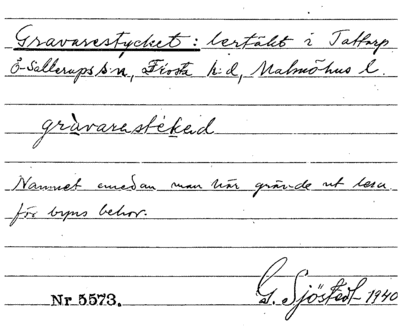 Gravarestycket: lertäkt i Tattarp
Ö Sallerups s:n, Frosta h:d, Malmöhus l.
gràvarastẹ́kẹd
Namnet emedan man här grävde ut lera
för byns behov.
Nr 5573.
G. Sjöstedt 1940